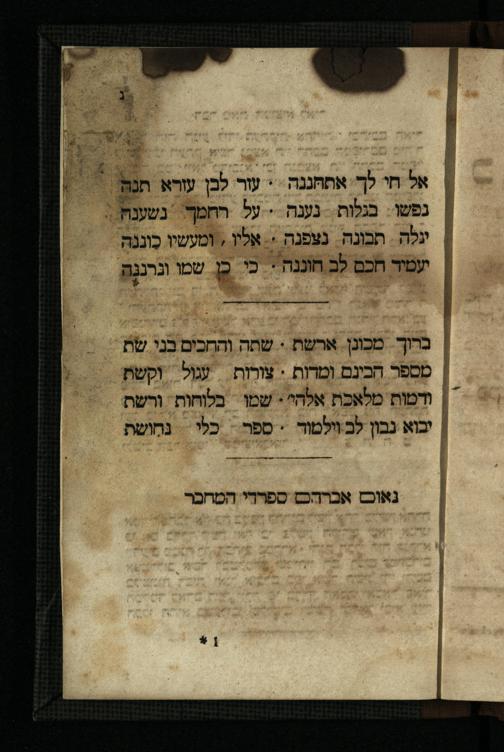 אל חי לך אתחננה · עזר לבן עזרא תנה
נפשו בגלות נענה · על רחמך נשענה
יגלה תבונה נצפנה · אליו , ומעשיו כוננה
יעמיד חכם לב חוננה · כי כן שמו ונרננה
ברוך מכונן ארשת · שתה והחכים בני שת
מספר הבינם ומדות · צורות עגול וקשת
ודמות מלאכת אלהי · שמו בלוחות ורשת
יבוא נבון לב וילמוד · ספר כלי נחושת
נאום אברהם ספרדי המחבר
* 1